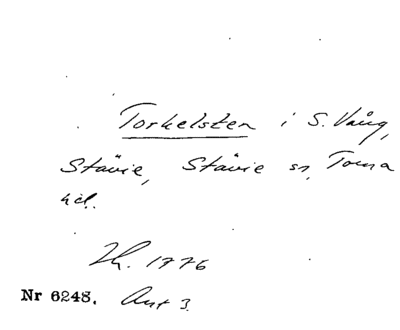 Torkelsten i S. Vång,
Stävie, Stävie sn, Torna
hd.
1776
Nr 6248. Ant 3.